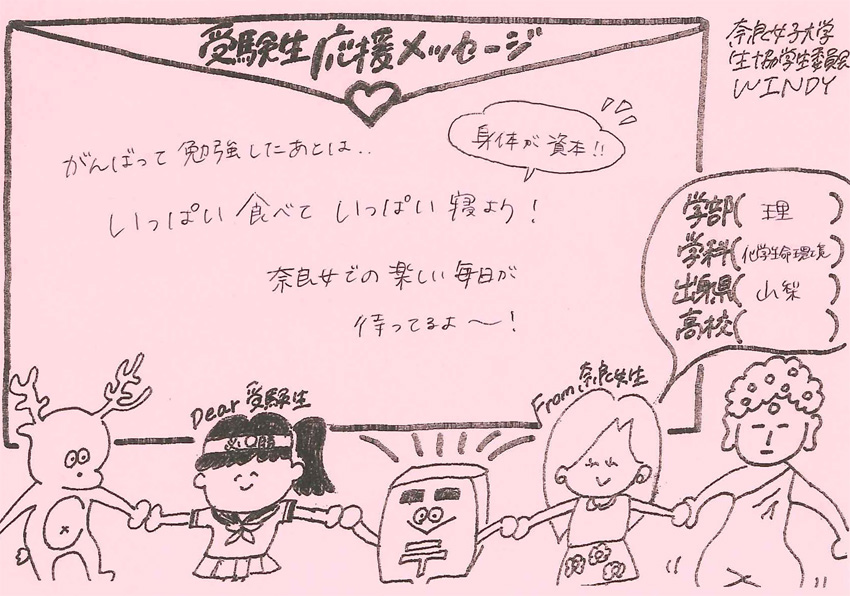 受験生応援メッセージ
奈良女子大学
生協学生委員会
WINDY
がんばって 勉強したあとは..
身体が 資本!!
いっぱい 食べて いっぱい 寝より!
奈良女での 楽しい 毎日が
待ってるよ〜!
学部( 理 )
学科(化学生命環境)
出身県( 山梨 )
高校( )
Dear 受験生
From 奈良女生
必勝
〒